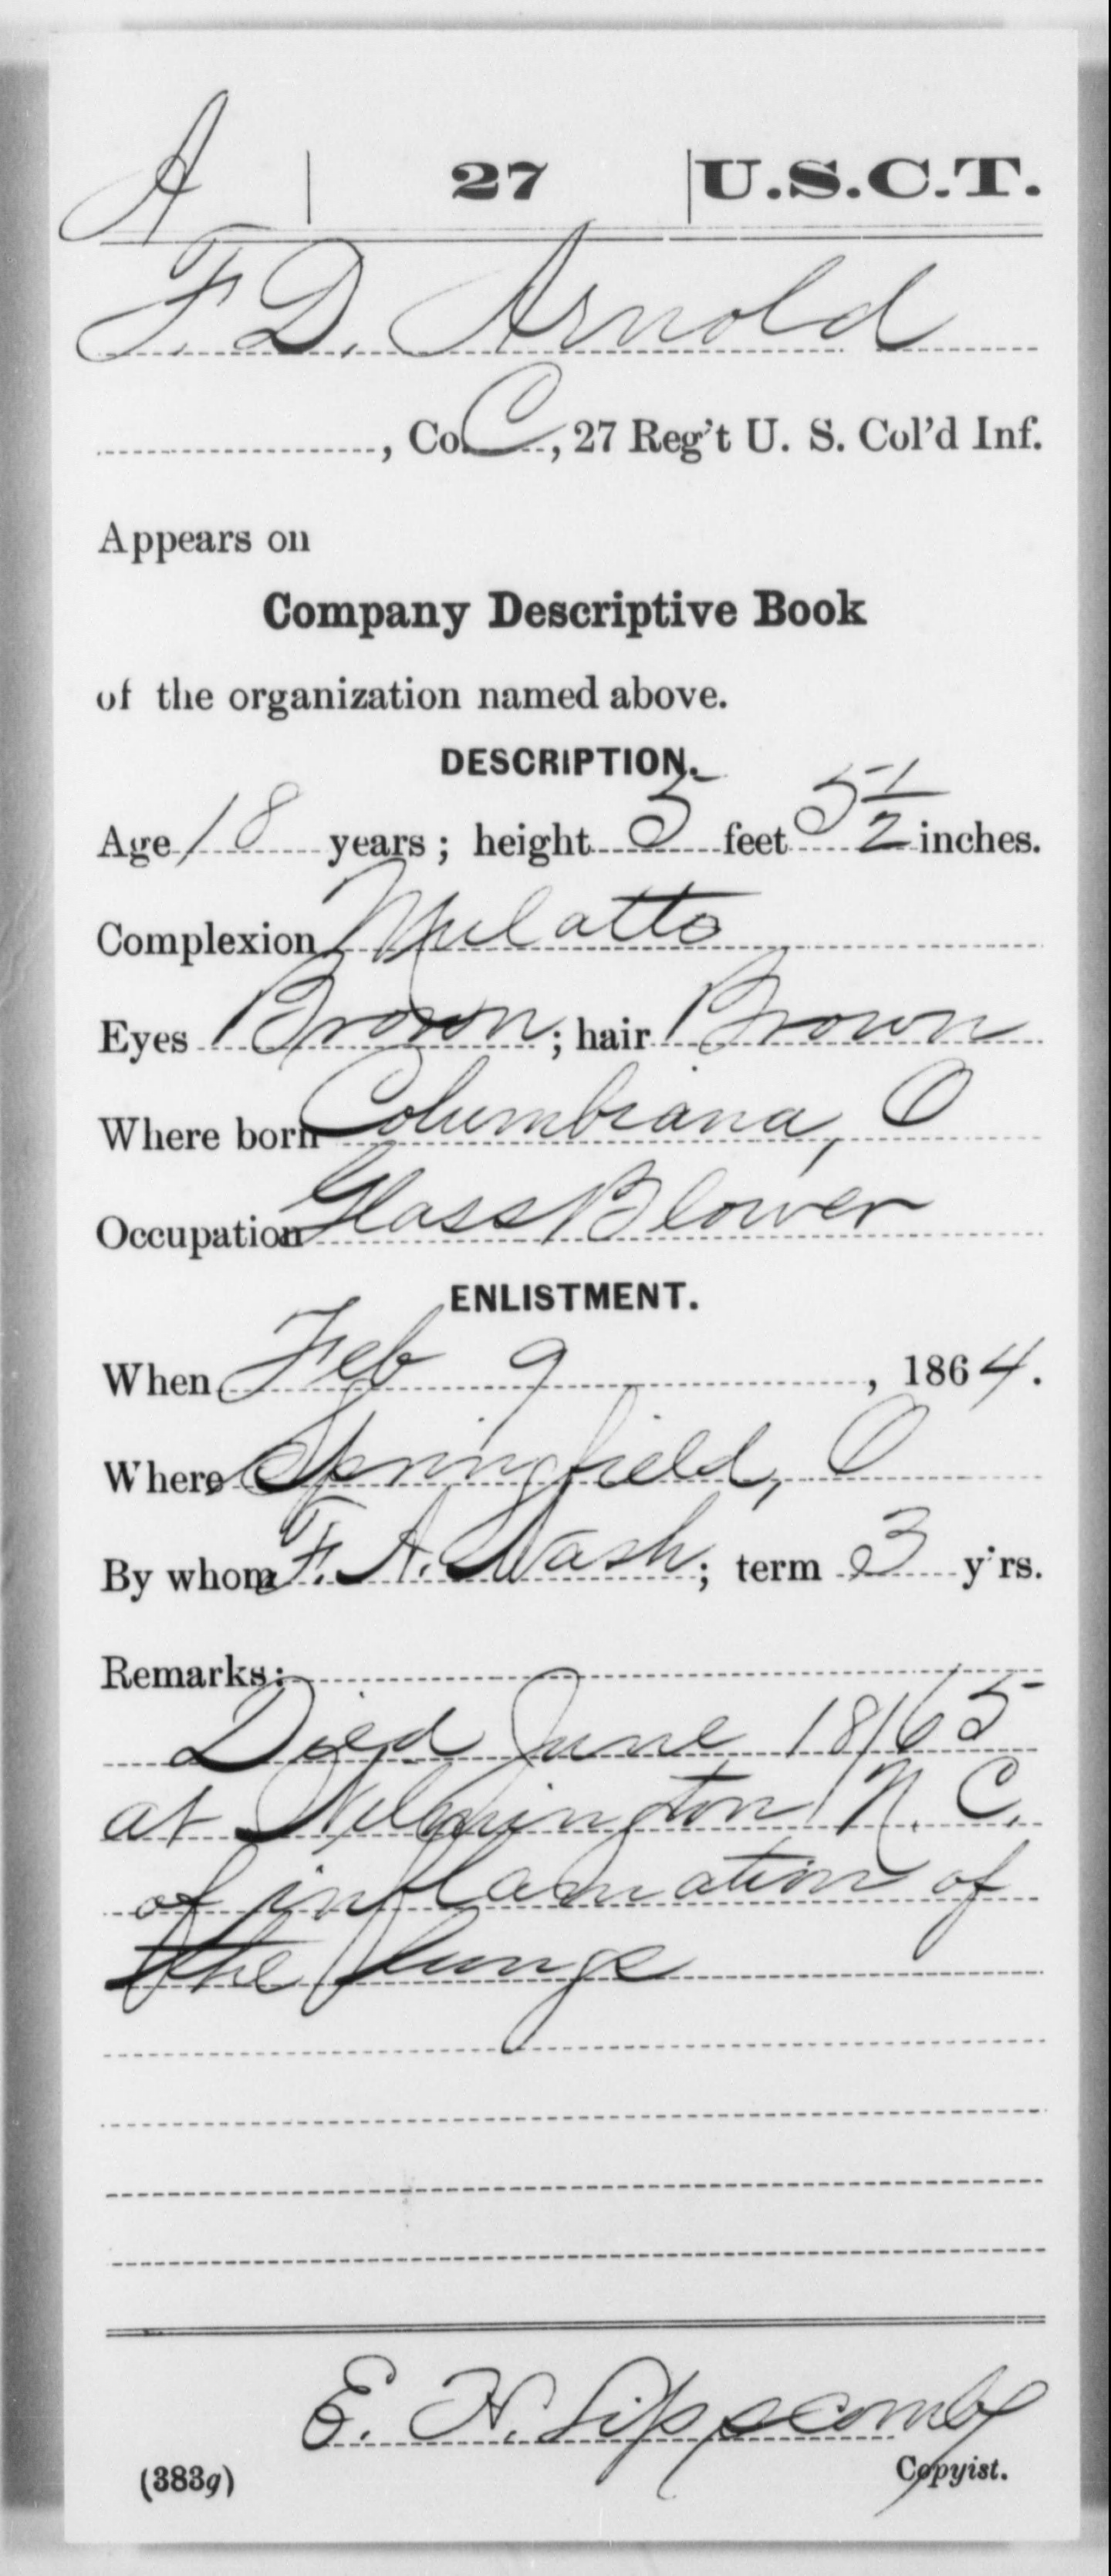 A | 27 | U.S.C.T.
F. D. Arnold
, Co. C, 27 Reg't U. S. Col'd Inf.
Appears on
Company Descriptive Book
of the organization named above.
DESCRIPTION.
Age 18 years; height 5 feet 5 1/2 inches.
Complexion Mulatto
Eyes Brown; hair Brown
Where born Columbiana, O
Occupation Glass Blower
ENLISTMENT.
When Feb 9, 1864.
Where Springfield, O
By whom F. A. Nash; term 3 y'rs.
Remarks:
Died June 18/65
at Wilmington N. C.
of inflamation of
the lungs
E. H. Lipscomb
(383g) Copyist.